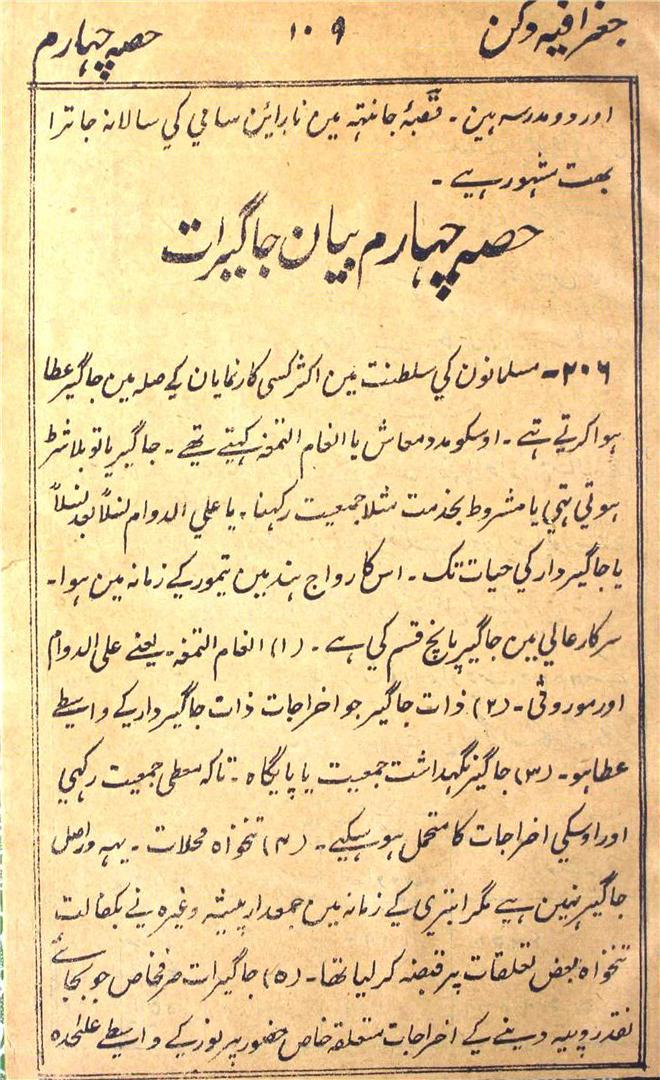 جغرافیہ دکن ۱۰۹ حصہ چہارم
اور دو مدرسہ ہین ۔ قصبۂ جانتہہ مین نارائن سامی کي سالانہ جاترا
بہت مشہور ہیے ۔
حصہ چہارم بیان جاگیرات
۲۰۶ ۔ مسلمانون کي سلطنت مین اکثر کسی کار نمایان کے صلہ مین جاگیر عطا
ہوا کرتے تہے ۔ اوسکو مدد معاش یا انعام التمغہ کہتے تھے ۔ جاگیر یا تو بلا شرط
ہوتي تہي یا مشروط بخدمت مثلا جمعیت رکہنا ۔ یا علي الدوام نسلاً بعد نسلاً
یا جاگیردار کي حیات تک ۔ اس کا رواج ہند مین تیمور کے زمانہ مین ہوا ۔
سرکار عالي مین جاگیر پانچ قسم کي ہے ۔ (۱) انعام التمغہ ۔ یعنے علی الدوام
اور موروثی ۔ (۲) ذات جاگیر جو اخراجات ذات جاگیردار کے واسطے
عطا ہو ۔ (۳) جاگیر نگہداشت جمعیت یا پایگاہ ۔ تاکہ معطی جمعیت رکہي
اور اوسکي اخراجات کا متحمل ہو سکیے ۔ (۴) تنخواہ محلات ۔ یہہ دراصل
جاگیر نہین ہیے مگر ابتری کے زمانہ مین جمعدار پیشہ وغیرہ نے بکفالت
تنخواہ بعض تعلقات پر قبضہ کر لیا تھا ۔ (۵) جاگیرات صرفخاص جو بجائے
نقد روپیہ دینے کے اخراجات متعلقہ خاص حضور پر نور کے واسطے علٰحدہ